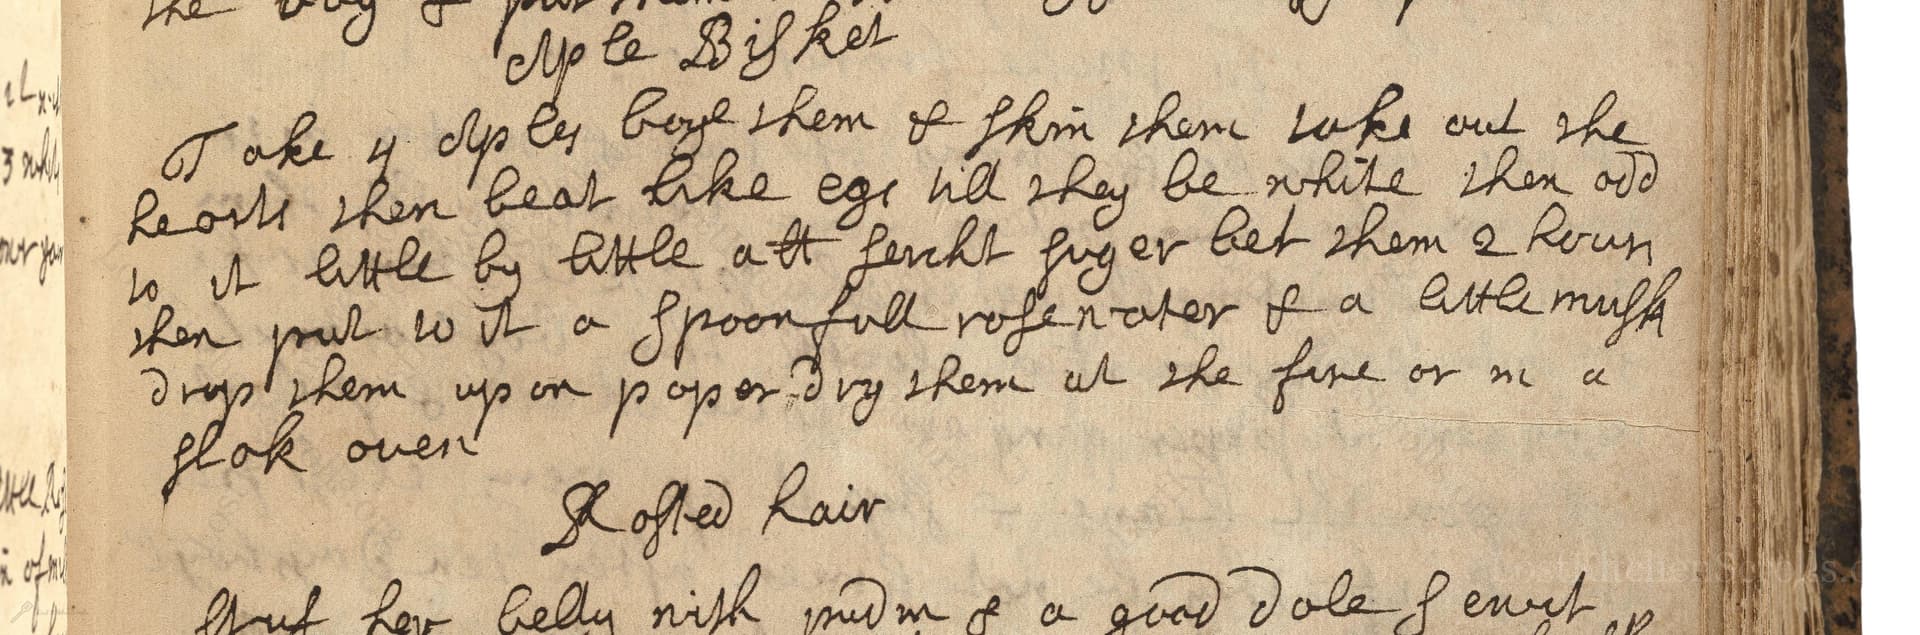 the way & put them
Aple Bisket
Take 4 Aples boye them & skin them take out the
hearts then beat like egs till they be white then add
to it little by little att sercht suger bet them 2 hours
then put to it a spoonfull rosewater & a little musk
drop them upon paper dry them at the fire or in a
slak oven
Rosted hair
Stuf her belly with pudin & a good dale